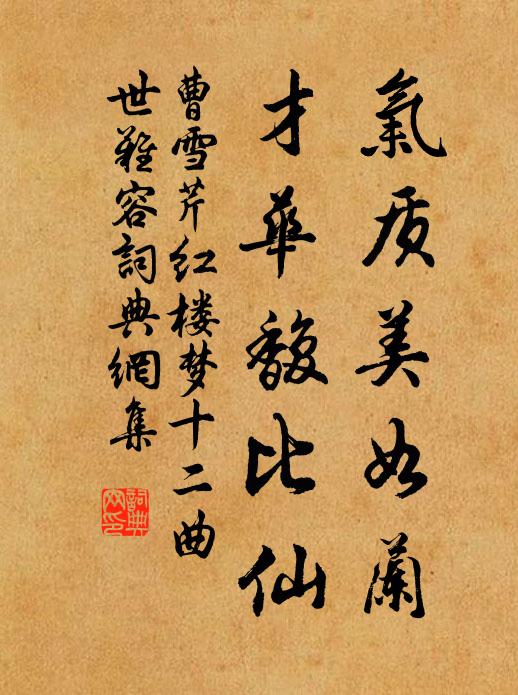 氣质美如蘭
才華馥比仙
曹雪芹红楼梦十二曲
世难容詞典網集
詞典
网印